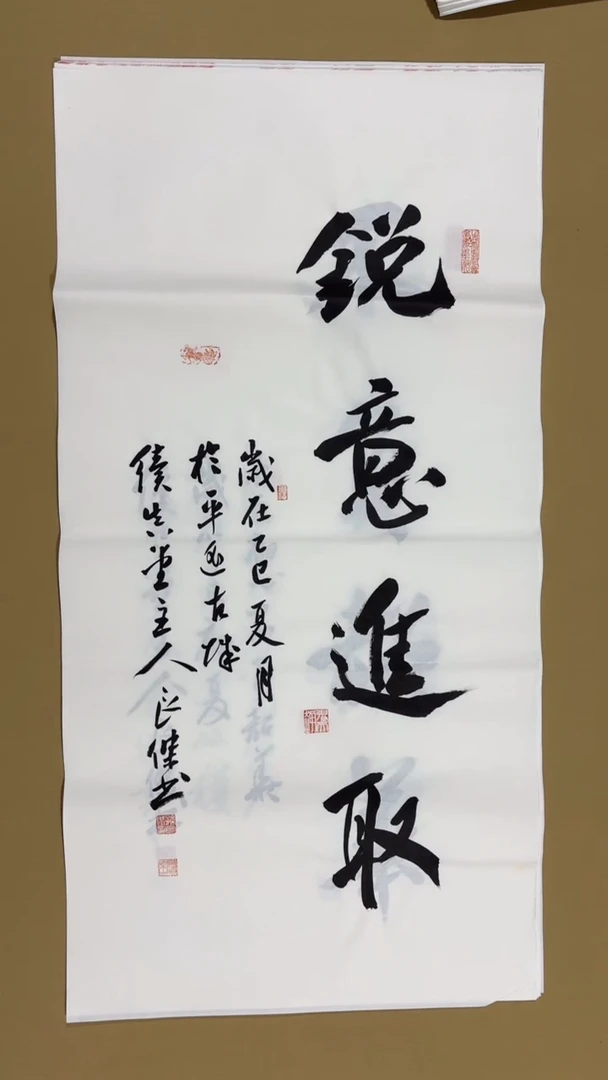 銳意進取
歲在乙巳夏月
於平遥古城
續真堂主人良傑书